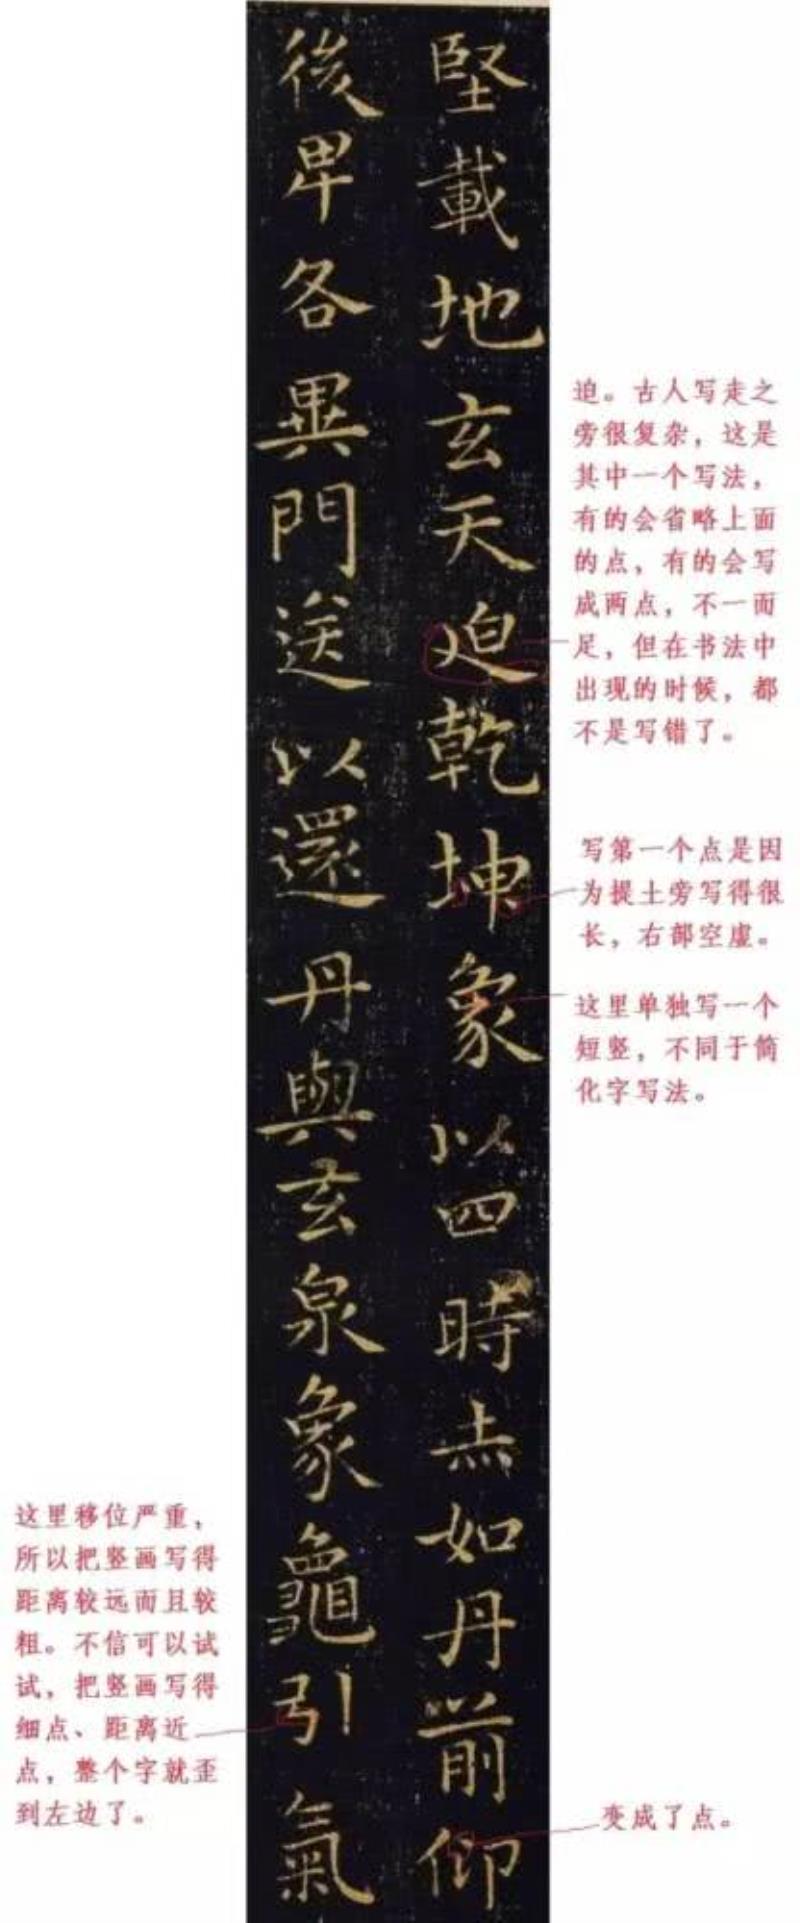 堅載地玄天迫乾坤象以四時灮如丹前仰
後卑各異門送以還丹與玄泉象龜引氣
迫。古人写走之
旁很复杂，这是
其中一个写法，
有的会省略上面
的点，有的会写
成两点，不一而
足，但在书法中
出现的时候，都
不是写错了。
写第一个点是因
为提土旁写得很
长，右部空虚。
这里单独写一个
短竖，不同于简
化字写法。
变成了点。
这里移位严重，
所以把竖画写得
距离较远而且较
粗。不信可以试
试，把竖画写得
细点、距离近
点，整个字就歪
到左边了。